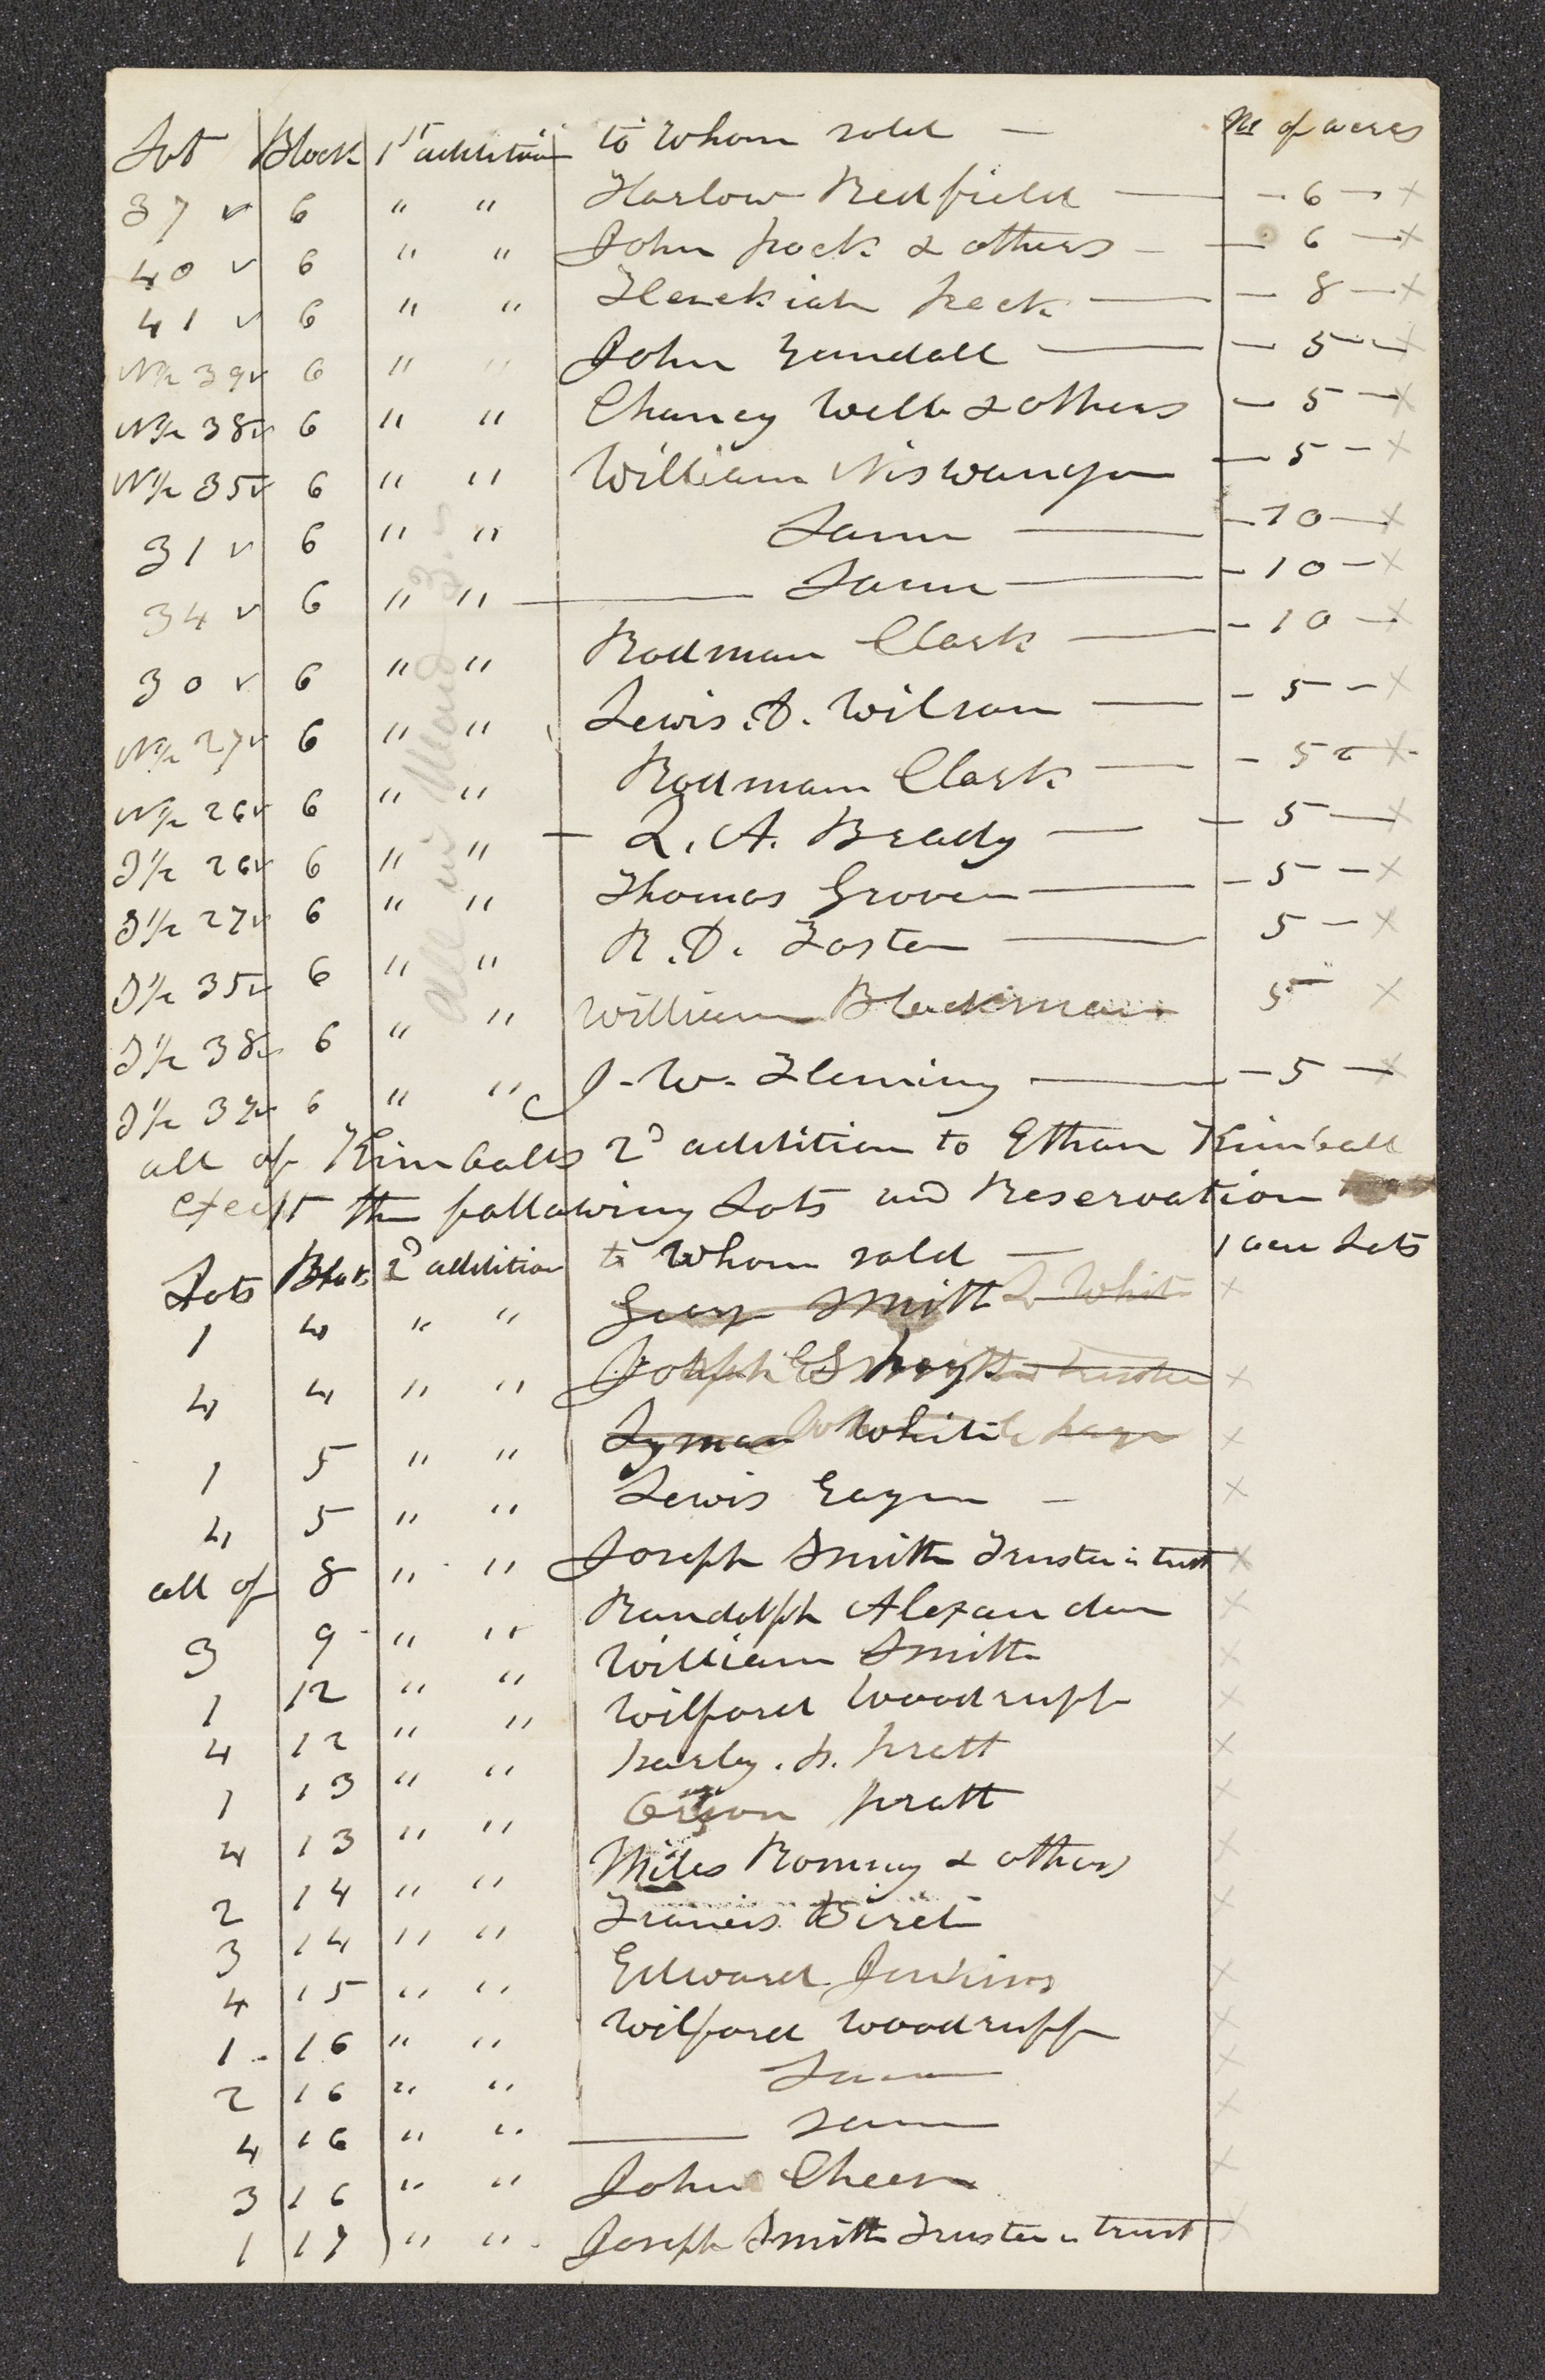 Lot Block 1st addition to whom sold — No of acres
37 ✓ 6 " " Harlow Redfield — — 6 — ×
40 ✓ 6 " " John pack & others — — 6 — ×
41 ✓ 6 " " Hezekiah peck — — 8 — ×
N½ 39 ✓ 6 " " John Zundall — — 5 — ×
N½ 38 ✓ 6 " " Chancy Webb & others — 5 — ×
N½ 35 ✓ 6 " " William Niswanger — 5 — ×
31 ✓ 6 " " Same — — 10 — ×
34 ✓ 6 " " — Same — — 10 — ×
30 ✓ 6 " " Rodman Clark — — 10 — ×
N½ 27 ✓ 6 " " Lewis. D. Wilson — — 5 — ×
N½ 26 ✓ 6 " " Rodman Clark — — 5 ×
S½ 26 ✓ 6 " " — L. A. Brady — — 5 — ×
S½ 27 ✓ 6 " " Thomas Grover — — 5 — ×
S½ 35 ✓ 6 " " R. D. Foster — 5 — ×
S½ 38 ✓ 6 " " William Blackman 5 ×
S½ 39 ✓ 6 " " J. W. Fleming — — 5 — ×
all in
all of Kimballs 2d addition to Ethan Kimball
except the following Lots and Reservation
Lots Block 2d addition to whom sold — 1 acre Lots
1 4 " " George Smith L White ×
4 4 " " Joseph ×
1 5 " " Lyman White ×
4 5 " " Lewis — ×
all of 8 " " Joseph Smith Trustee in trust ×
3 9 " " Randolph Alexander ×
1 12 " " William Smith ×
4 12 " " Wilford Woodruff ×
1 13 " " parley. p. pratt ×
4 13 " " Orson pratt ×
2 14 " " Miles Romney & others ×
3 14 " " Francis ×
4 15 " " Edward Jenkins ×
1 . 16 " " Wilford Woodruff ×
2 16 " " Same ×
4 16 " " — same ×
3 16 " " John Cheen ×
1 17 " " Joseph Smith Trustee in trust ×